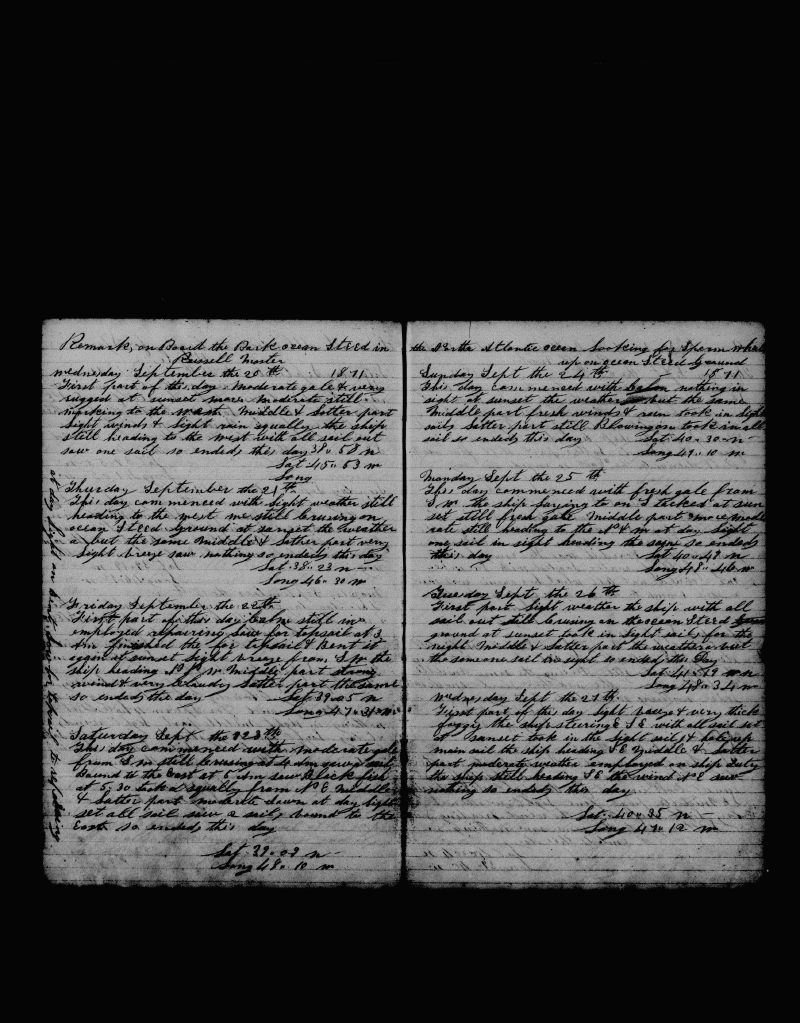 Remark, on Board the Bark ocean Steed in
Russell Master
Wednesday September the 20th 1871
First part of this day moderate gale & very
rugged at sunset more moderate still
working to the west Middle & latter part
light winds & light rain squally the ship
still heading to the west with all sail out
saw one sail so ended this day 38 " 58 n
Lat 45 " 53 w
Long
Thursday September the 21th
This day commenced with light weather still
heading to the west we still cruising on
ocean Steed ground at sunset the weather
a but the same Middle & latter part very
light breeze saw nothing so ended this day
Lat 38 " 23 n
Long 46 " 30 w
Friday September the 22th
First part of this day calm still in
employed repairing fore topsail at 3
Am finished the for topsail & Bent it
again at sunset light breeze from S W the
ship heading N W Middle part strong
wind & very cloudy latter part the same
so ended the day Lat 39 " 05 n
Long 47 " 31 w
Saturday Sept the 23th
This day commenced with moderate gale
from S W still cruising at 4 Am
Bound to the East at 5 Am saw Black fish
at 5 " 30 squally from N E Middle
& latter part moderate dawn at day light
set all sail saw 2 sails bound to the
East so ended this day
Lat 39 " 09 n
Long 48 " 10 w
the North Atlantic ocean looking for Sperm whale
up on ocean Steed Ground
Sunday Sept the 24th 1871
This day commenced with nothing in
sight at sunset the weather but the same
Middle part fresh winds & rain took in light
sails latter part still blowing on took in all
sail so ended this day Lat 40 " 30 n
Long 49 " 10 w
Monday Sept the 25th
This day commenced with fresh gale from
S W the ship laying to on I tacked at sun
set still fresh gale Middle part more mode
rate still heading to the N & W at day light
one sail in sight heading the same so ended
this day Lat 40 " 49 n
Long 48 " 46 w
Tuesday Sept the 26th
First part light weather the ship with all
sail out still cruising on the ocean Steed
ground at sunset took in light sails for the
night Middle & latter part the weather a but
the same one sail in sight so ended this Day
Lat 41 " 19 n
Long 48 " 34 w
Wednesday Sept the 27th
First part of the day light breeze & very thick
foggy the ship steering E S E with all sail set
at sunset took in the light sails &
main sail the ship heading S E Middle & latter
part moderate weather employed on ship duty
the ship still heading S E the wind N E saw
nothing so ended this day
Lat 40 " 35 n
Long 49 " 12 w